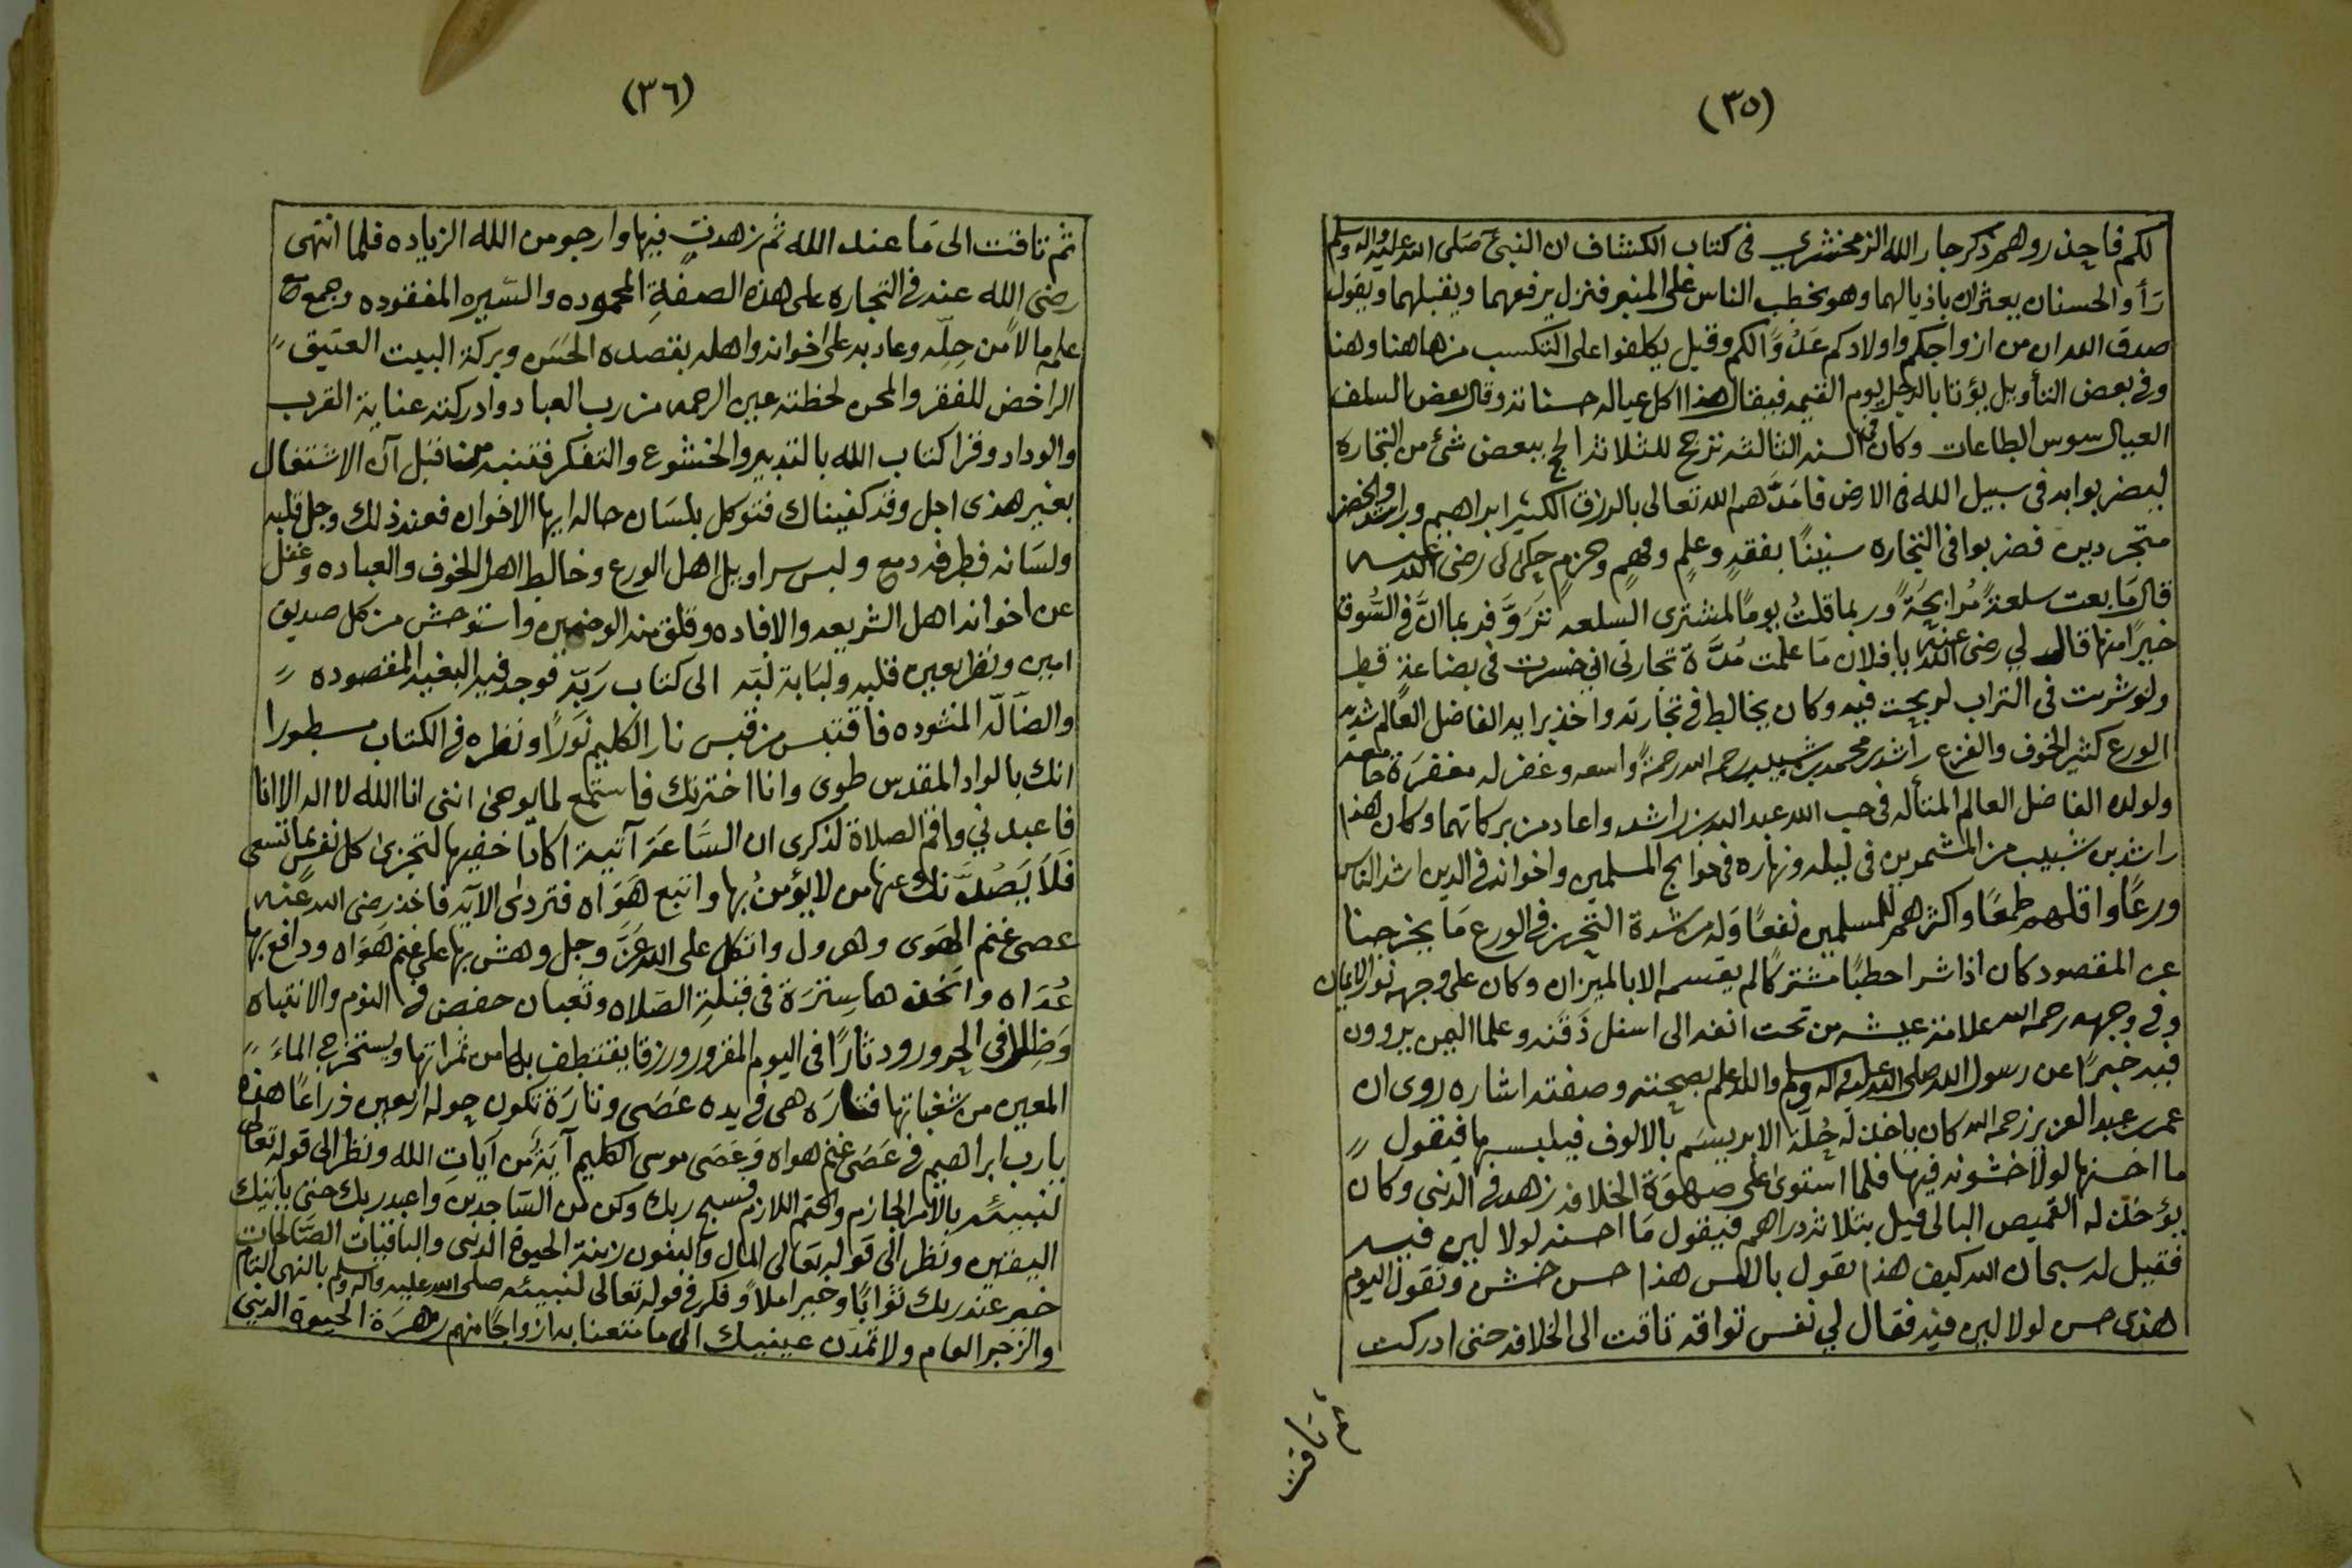 (٣٥)
لكم فاحذروهم ذكر جار الله الزمخشري في كتاب الكشاف ان النبي صَلى الله عليه واله وسلم
رَأ والحسنان يعثران باذيالهما وهو يخطب الناس على المنبر فنزل يرفعهما ويقبلهما ويقول
صدق الله ان من ازواجكم واولادكم عَدُوًا لكم وقيل يكلفوا على التكسب من هاهنا وهنا
وفي بعض التأويل يؤتا بالرجل يوم القيمه فيقال هذا اكل عياله حسناته وقال بعض السلف
العيال سوس الطاعات وكان في السنه الثالثه نزحج للثلاثه الحج ببعض شئ من التجاره
ليضربوا به في سبيل الله في الارض فامَدَّهم الله تعالى بالرزق الكثير ابراهيم وراشد والخضر
متجردين فضربوا في التجاره سنينًا بفقهٍ وعلمٍ وفهمٍ وحزمٍ حكى لى رضى الله عنه
قال مَا بعت سلعةً مُرابحَةً وربما قلتُ يومًا لمشترى السلعه تَرَوَّ فربما انَّ في السُوق
خيرًا منها قال لي رضى الله عنه يا فلان مَا علمت مُدَّة تجارتي اني خسرت في بضاعةٍ قط
ولو شريت في التراب لربحت فيه وكان يخالط في تجارته واخذ برايه الفاضل العالم شديد
الورع كثير الخوف والفزع راشد بن محمد بن شبيب رحمه الله رحمةً واسعه وغفر له مغفرة جامعه
ولولده الفاضل العالم المتأله في حب الله عبد الله بن راشد واعاد من بركاتهما وكان هذا
راشد بن شبيب من المشمرين في ليله ونهاره في حوايج المسلمين واخوانه في الدين اشد الناس
ورعًا واقلهم طمعًا واكثرهم للمسلمين نفعًا وَله من شدة التحرين في الورع مَا يخرجنا
عن المقصود كان اذا شرا حطبًا مشتركًا لم يقسمه الا بالميزان وكان على وجهه نور الايمان
وفي وجهه رحمه الله علامة عيشه من تحت انفه الى اسفل ذقنه وعلما اليمن يروون
فيه خبرًا عن رسول الله صلى الله عليه واله وسلم والله اعلم بصحته وصفته اشاره روى ان
عمر بن عبد العزيز رحمه الله كان ياخذ له حُلّةَ الابريسَم بالالوف فيلبسها فيقول
ما احسنها لولا خشونه فيها فلما استوى على صهوَة الخلافه زهد في الدنى وكان
يؤخذ له القميص البالى قيل بثلاثه دراهم فيقول مَا احسنه لولا لين فيه
فقيل له سبحان الله كيف هذا تقول بالامس هذا حسن خشن وتقول اليوم
هذى حسن لولا لين فيه فقال لي نفس تواقه تاقت الى الخلافه حتى ادركت
ثم تاقت
(٣٦)
ثم تاقت الى مَا عند الله ثم زهدت فيها وارجو من الله الزياده فلما انتهى
رضى الله عنه في التجاره على هذه الصفةِ المحموده والسّيره المفقوده وجمع مع
علمه مالاً من حِلّه وعاد به على اخوانه واهله بقصده الحَسَن وبركة البيت العتيق
الراخض للفقر والمحن لحظته عين الرحمه من رب العباد وادركته عناية القرب
والوداد وقرا كتاب الله بالتدبير والخشوع والتفكر فتنبه قبل آن الاشتغال
بغير هذى اجل وقد كفيناك فتوكل بلسَان حاله ايها الاخوان فعند ذلك وجل قلبه
ولسَانه فطرفه دمع ولبس سراويل اهل الورع وخالط اهل الخوف والعباده وغفل
عن اخوانه اهل الشريعه والافاده وقلق منه الوضين واستوحش من كل صديق
امين ونظر بعين قلبه ولبَابة لُبّه الى كتاب رَبّه فوجد فيه البغيه المقصوده
والضَالّه المنشوده فاقتبس من قبس نار الكليم نورًا ونظره في الكتاب مسطورا
انك بالواد المقدس طوى وانا اخترتك فاستمع لما يوحىٰ انني انا الله لا اله الا انا
فاعبدني واقم الصلاة لذكرى ان السَّاعَة آتية اكادُ اخفيها لتجزىٰ كل نفس بما تسعى
فَلاَ يَصُدَّنك عنها من لا يؤمنُ بها واتبع هَوَاه فتردىٰ الآيه فاخذ رضى الله عنه
عصى غنم الهَوى وهرول واتكل على الله عَزّ وجل وهش بها على غنم هَوَاه ودافع بها
عُدَاه واتخذها سِترَة في قبلةِ الصَلاه وثعبان حفص في النوم والانتباه
وَظِلا في الحرور ودثارًا في اليوم المقرور ورزقا يقتطف بها من ثمراتها ويستخرج الماءَ
المعين من شغباتها فتارَه هى في يده عَصَى وتارَة تكون حوله اربعين ذراعًا هذه
يا رب ابراهيم في عَصَى غنم هواه وَعَصَى موسى الكليم آيَةٌ من آيَاتِ الله ونظر الى قوله تعالى
لنبيئه بالامر الجازم والحتم اللازم فسبح ربك وكن من السَاجدين واعبد ربك حتى ياتيك
اليقين ونظر الى قَوله تعَالى المال والبنون زينة الحيوة الدنى والباقيات الصَّالحات
خير عند ربك ثوابًا وخير املاً وفكر في قوله تعالى لنبيئه صلى الله عليه وآله وسلم بالنهى التام
والزجر العام ولا تمدّن عينيك الى ما متعنا به ازواجًا منهم زهرَة الحيوة الدنى